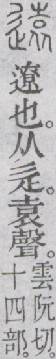 遠遼也。从辵。袁聲。雲阮切。
十四部。